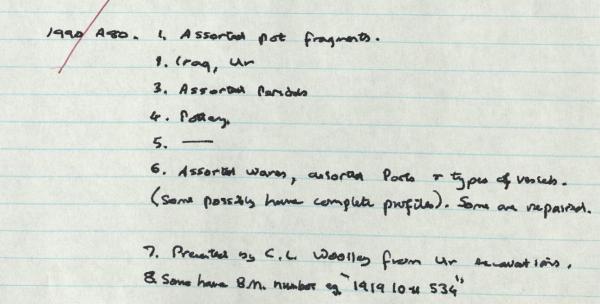 1990 A80. 1. Assorted pot fragments.
2. Iraq, Ur
3. Assorted Periods
4. Pottery.
5. —
6. Assorted wares, assorted Parts & types of vessels.
(Some possibly have complete profiles). Some are repaired.
7. Presented by C.L. Woolley from Ur excavations.
8. Some have B.M. number eg "1919 10-11 534"